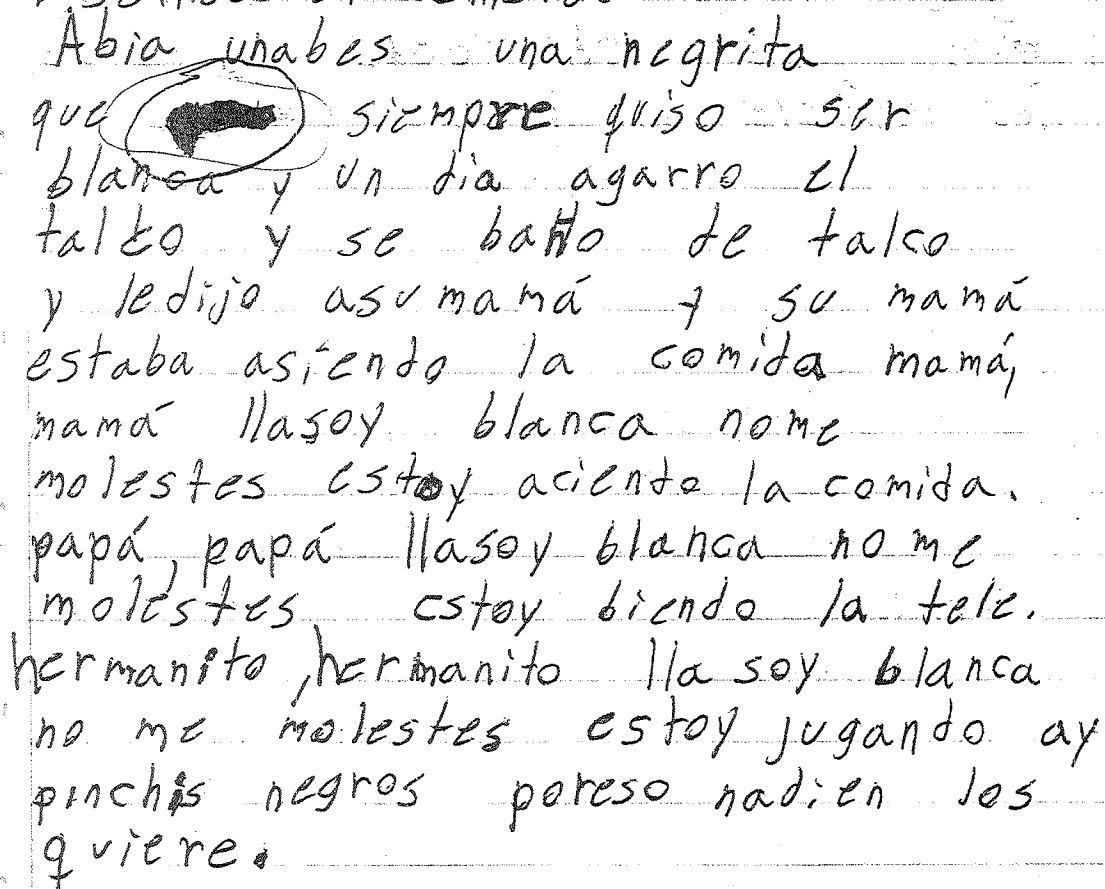 Abia unabes una negrita
que siempre quiso ser
blanca y un dia agarro el
talco y se baño de talco
y ledijo asumamá y su mamá
estaba asiendo la comida mamá,
mamá llasoy blanca nome
molestes estoy aciendo la comida.
papá, papá llasoy blanca no me
molestes estoy biendo la tele.
hermanito, hermanito lla soy blanca
no me molestes estoy jugando ay
pinchis negros poreso nadien los
quiere.